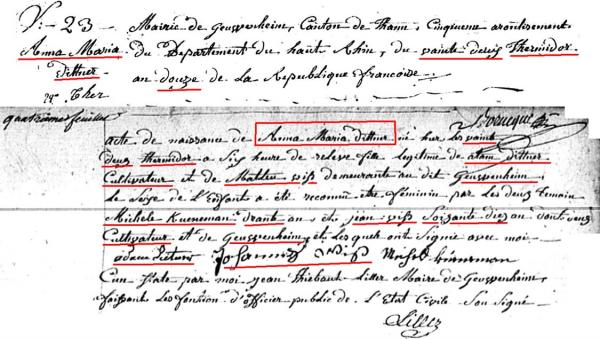 N: 23
Anna Maria
Dittner
22 Ther
Mairie de Geussenheim, Canton de Thann, Cinqueme arontisement
Du Departement du haut Rhin, du vainte deuz Thermidor
an douze de La Republique francoise
quatriemme feuillet
acte de naissance de Anna Maria Dittner né her Le vaint
deuz thermidor a Six heure de releve fille Legitime de adam dittner
Cultivateur et de Mathieu wiss demeurante au dit Geussenheim,
Le Seixe de L'Enfant a été reconnu être féminin par les deux temain
Michele Kueneman drant an, etc jean wiss Soizante dix an
Cultivateur et de Geussenheim, et Lesquels ont Signé avec moi
Johannes Wiss Michel kinneman
Con state par moi jean Thiebaut Liller Maire de Geussenheim,
faissant Les fonction d'officier public de L'Etat Civile Sou Signé
Liller